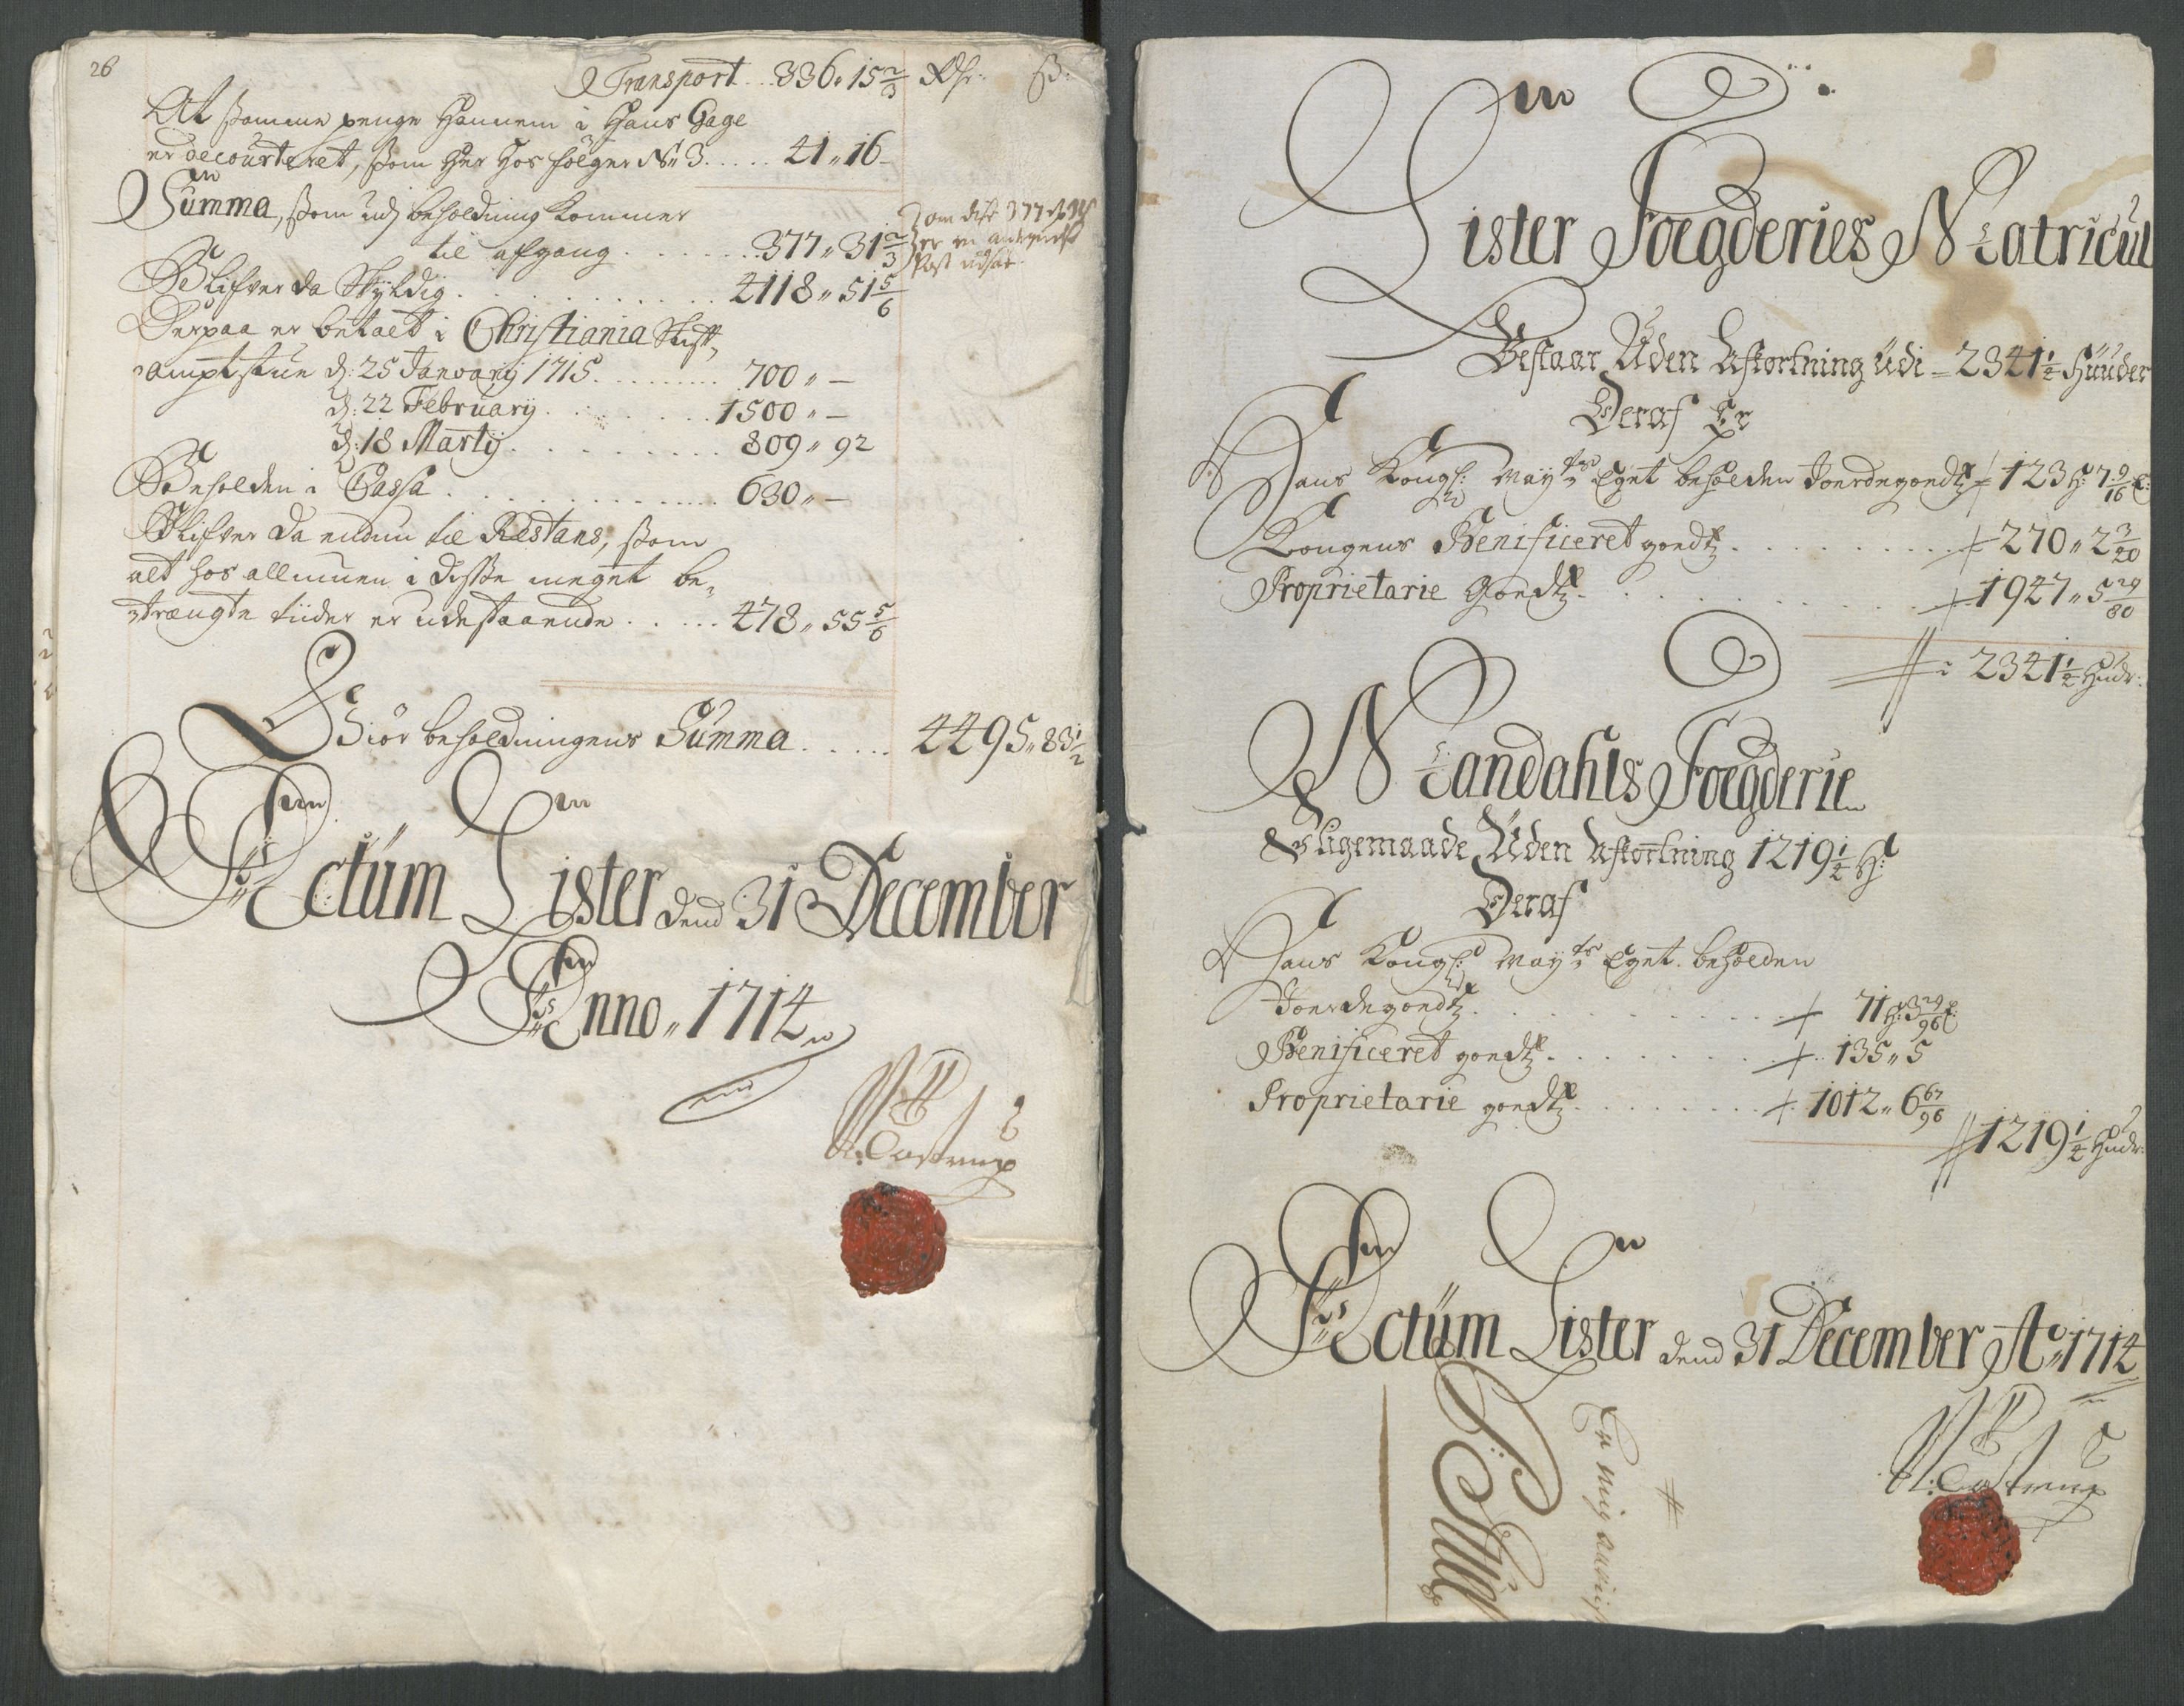 26
Transport . . 336 „ 15 2/3 Rdr: ß:
At samme penge Hannem i Hans Gage
er decourteret, som her hos følger No 3 . . . . . 41 „ 16 -
Summa, som udj beholdning kommer
til afgang . . . . . . . 377 „ 31 2/3
om disse 377 rdr
er en
Post udsat
Blifver da Skyldig . . . . . . . . . . . 4118 „ 51 5/6
Derpaa er betalt i Christiania Stift-
amptstue d: 25 Janvarij 1715 . . . . . . . . . 700 „ —
d: 22 Februarij . . . . . . . . 1500 „ —
d: 18 Martij . . . . . . . . . . 809 „ 92
Beholden i Cassa . . . . . . . . . . . . . . 630 „ —
Blifver da endnu til Restans, som
alt hos allmuen i disse meget be-
trængte tiider er udestaaende . . . . . 478 „ 55 5/6
Giör beholdningens Summa . . . . . 4495 „ 83 1/2
Actum Lister dend 31 December
Anno „ 1714
Lister Foegderies Matricul
Bestaar Uden Afkortning udi = 2341 1/4 Huuder
Deraf Er
Hans Kongl: May:ts Eget beholden Jordegoedtz 123 H: 7 9/16 E:
Kongens Benificeret goedtz . . . . . . . . 270 „ 2 3/20
Proprietarie Goedtz . . . . . . . . . . . 1947 „ 5 29/80
2341 1/4 Hudr:
Mandahls Foegderie
Ligemaade Uden Afkortning 1219 1/4 H:
Deraf
Hans Kongl: May:ts Eget beholden
Jordegoedtz . . . . . . . . . . . . 71 H: 3 29/96 E:
Benificeret goedtz . . . . . . . . 135 „ 5
Proprietarie goedtz . . . . . . . . 1012 „ 6 67/96
1219 1/4 Hudr:
Actum Lister dend 31 December Ao 1714
Er mig